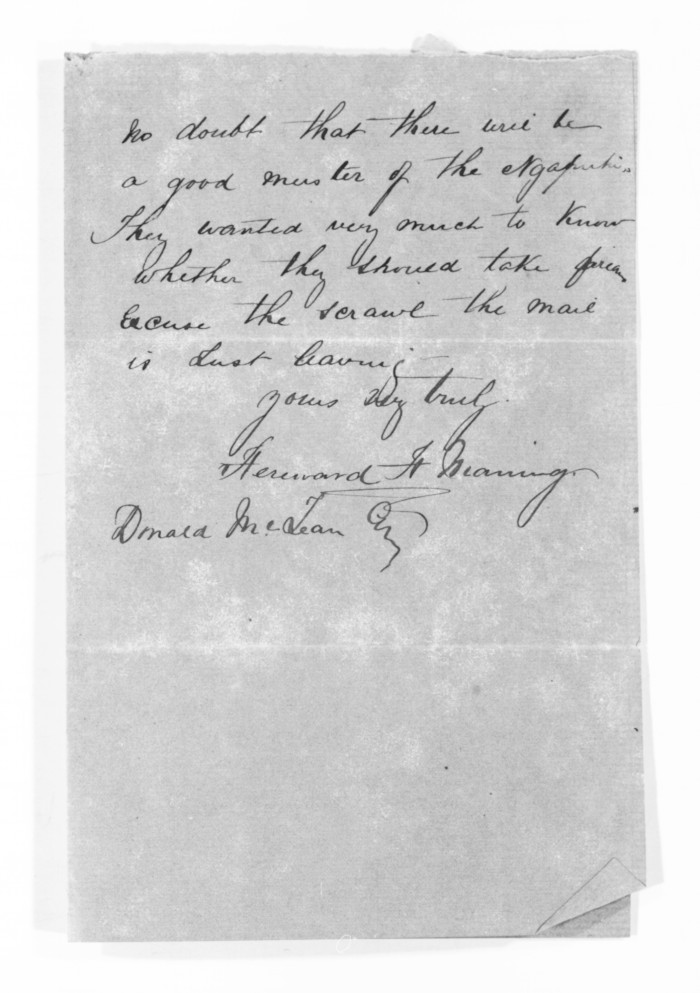 no doubt that there will be
a good muster of the Ngapuhi.
They wanted very much to know
whether they should take
Excuse the scrawl the mail
is Just leaving
yours very truly.
Hereward H Maning
Donald McLean Esq